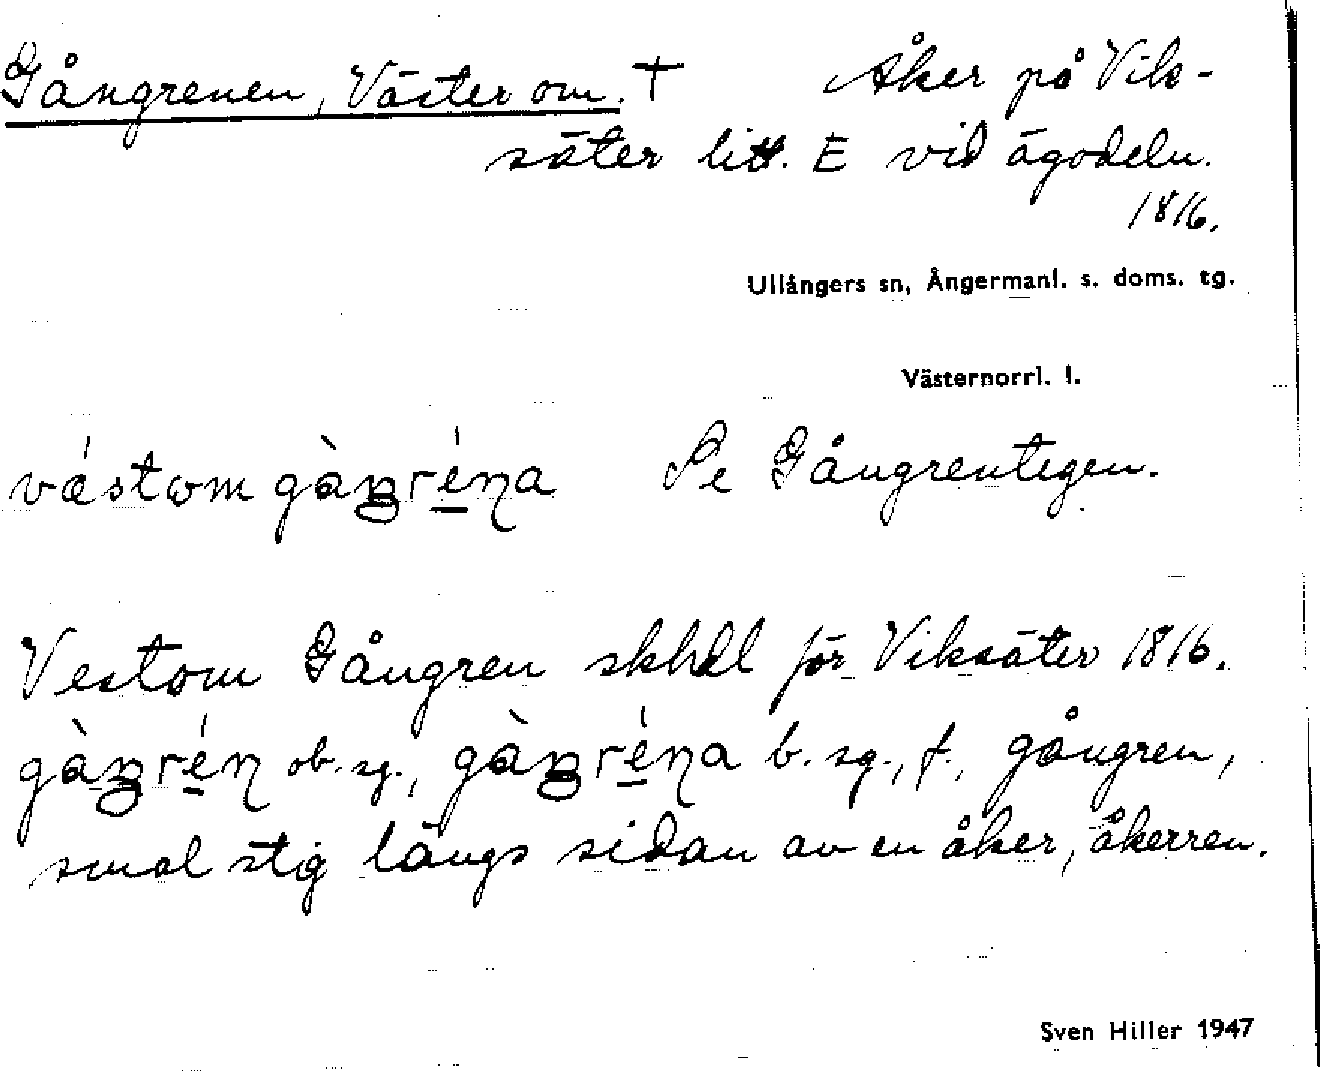 Gångrenen, Väster om. † Åker på Vik-
säter litt. E vid ägodeln.
1816.
Ullångers sn, Ångermanl. s. doms. tg.
Västernorrl. l.
Se Gångrentegen.
Vestom Gångren skhdl för Viksäter 1816.
ob. sg., b. sg., f., gångren,
smal stig längs sidan av en åker, åkerren.
Sven Hiller 1947